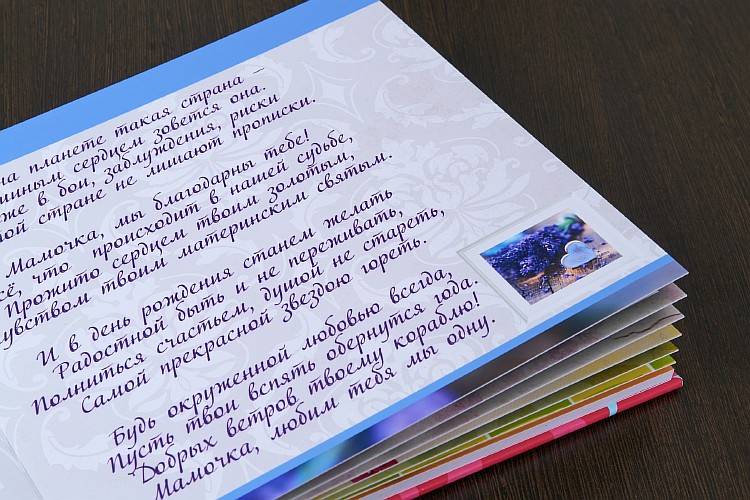 на планете такая страна –
сердцем зовется она.
же в бои, заблуждения, риски
стране не лишают прописки.
Мамочка, мы благодарны тебе!
что происходит в нашей судьбе,
Прожито сердцем твоим золотым,
чувством твоим материнским святым.
И в день рождения станем желать
Радостной быть и не переживать,
Полниться счастьем, душой не стареть,
Самой прекрасной звездою гореть.
Будь окруженной любовью всегда,
Пусть твои вспять обернутся года.
Добрых ветров твоему кораблю!
Мамочка, любим тебя мы одну.